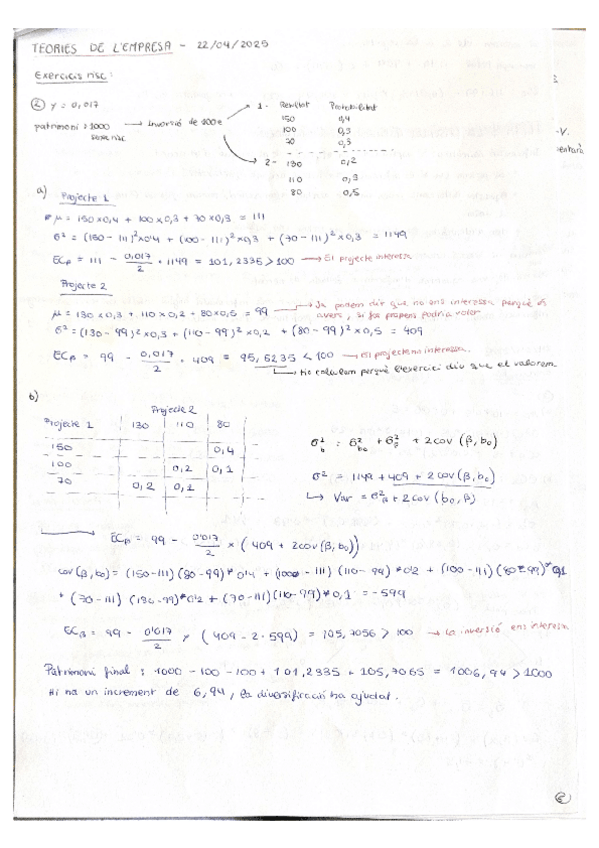 TEORIES DE L'EMPRESA - 22/04/2025
Exercicis risc:
② y = 0,017
patrimoni: 1000 → Inversió de 100€
sense risc
1- Resultat Probabilitat
150 0,4
100 0,3
70 0,3
2- 130 0,2
110 0,3
80 0,5
-V.
entarà
a) Projecte 1
μ = 150x0,4 + 100x0,3 + 70x0,3 = 111
σ² = (150-111)²x0,4 + (100-111)²x0,3 + (70-111)²x0,3 = 1149
ECβ = 111 - 0,017/2 · 1149 = 101,2335 > 100 → El projecte interessa
Projecte 2
μ = 130x0,3 + 110x0,2 + 80x0,5 = 99 → Ja podem dir que no ens interessa perquè és
advers, si fos propens podria voler
σ² = (130-99)²x0,3 + (110-99)²x0,2 + (80-99)²x0,5 = 409
ECβ = 99 - 0,017/2 · 409 = 95,5235 < 100 → El projecte no interessa.
→ Ho calculem perquè l'exercici diu que el valorem
b)
Projecte 2
Projecte 1 130 110 80
150 0,4
100 0,2 0,1
70 0,2 0,1
σ²b = σ²b0 + σ²β + 2cov(β,b0)
σ² = 1149 + 409 + 2cov(β,b0)
↳ Var = σ²β + 2cov(b0,β)
→ ECβ = 99 - 0'017/2 x (409 + 2cov(β,b0))
cov(β,b0) = (150-111)(80-99)*0'4 + (100-111)(110-99)*0'2 + (100-111)(80-99)*0,1
+ (70-111)(130-99)*0'2 + (70-111)(110-99)*0,1 = -599
ECβ = 99 - 0'017/2 x (409 - 2·599) = 105,7056 > 100 → La inversió ens interessa
Patrimoni final: 1000 - 100 - 100 + 101,2335 + 105,7065 = 1006,94 > 1000
Hi ha un increment de 6,94, la diversificació ha ajudat.